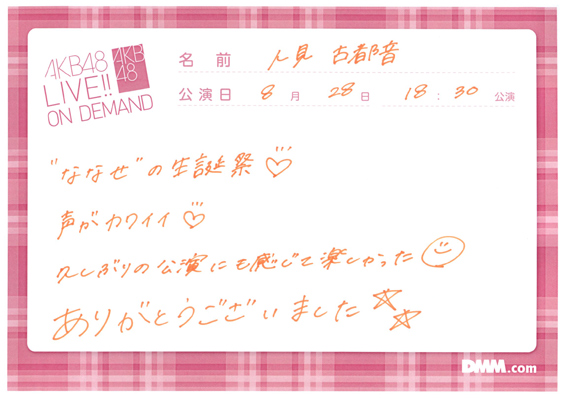 AKB48
LIVE!!
ON DEMAND
AKB
48
名前 人見 古都音
公演日 8月 28日 18:30 公演
"ななせ"の生誕祭♡
声がカワイイ♡
久しぶりの公演にも感じて楽しかった☺
ありがとうございました☆☆
DMM.com